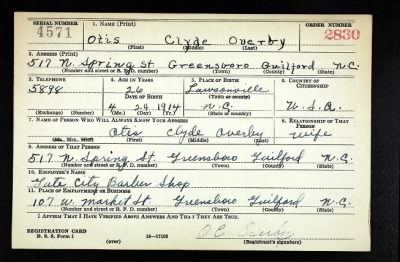 SERIAL NUMBER
1. NAME (Print)
ORDER NUMBER
4571
Otis Clyde Overby
2830
(First) (Middle) (Last)
2. ADDRESS (Print)
517 N. Spring St. Greensboro Guilford N.C.
(Number and street or R. F. D. number) (Town) (County) (State)
3. TELEPHONE
4. AGE IN YEARS
5. PLACE OF BIRTH
6. COUNTRY OF CITIZENSHIP
5898
26
Lawsonville
DATE OF BIRTH
(Town or county)
4 24 1914
N.C.
U.S.A.
(Exchange) (Number)
(Mo.) (Day) (Yr.)
(State or country)
7. NAME OF PERSON WHO WILL ALWAYS KNOW YOUR ADDRESS
8. RELATIONSHIP OF THAT PERSON
Otis Clyde Overby
wife
(First) (Middle) (Last)
9. ADDRESS OF THAT PERSON
517 N. Spring St. Greensboro Guilford N.C.
(Number and street or R. F. D. number) (Town) (County) (State)
10. EMPLOYER'S NAME
Gate City Barber Shop
11. PLACE OF EMPLOYMENT OR BUSINESS
107 W. Market St Greensboro Guilford N.C.
(Number and street or R. F. D. number) (Town) (County) (State)
I AFFIRM THAT I HAVE VERIFIED ABOVE ANSWERS AND THAT THEY ARE TRUE.
REGISTRATION CARD
D. S. S. Form 1
(over)
16—17105
(Registrant's signature)